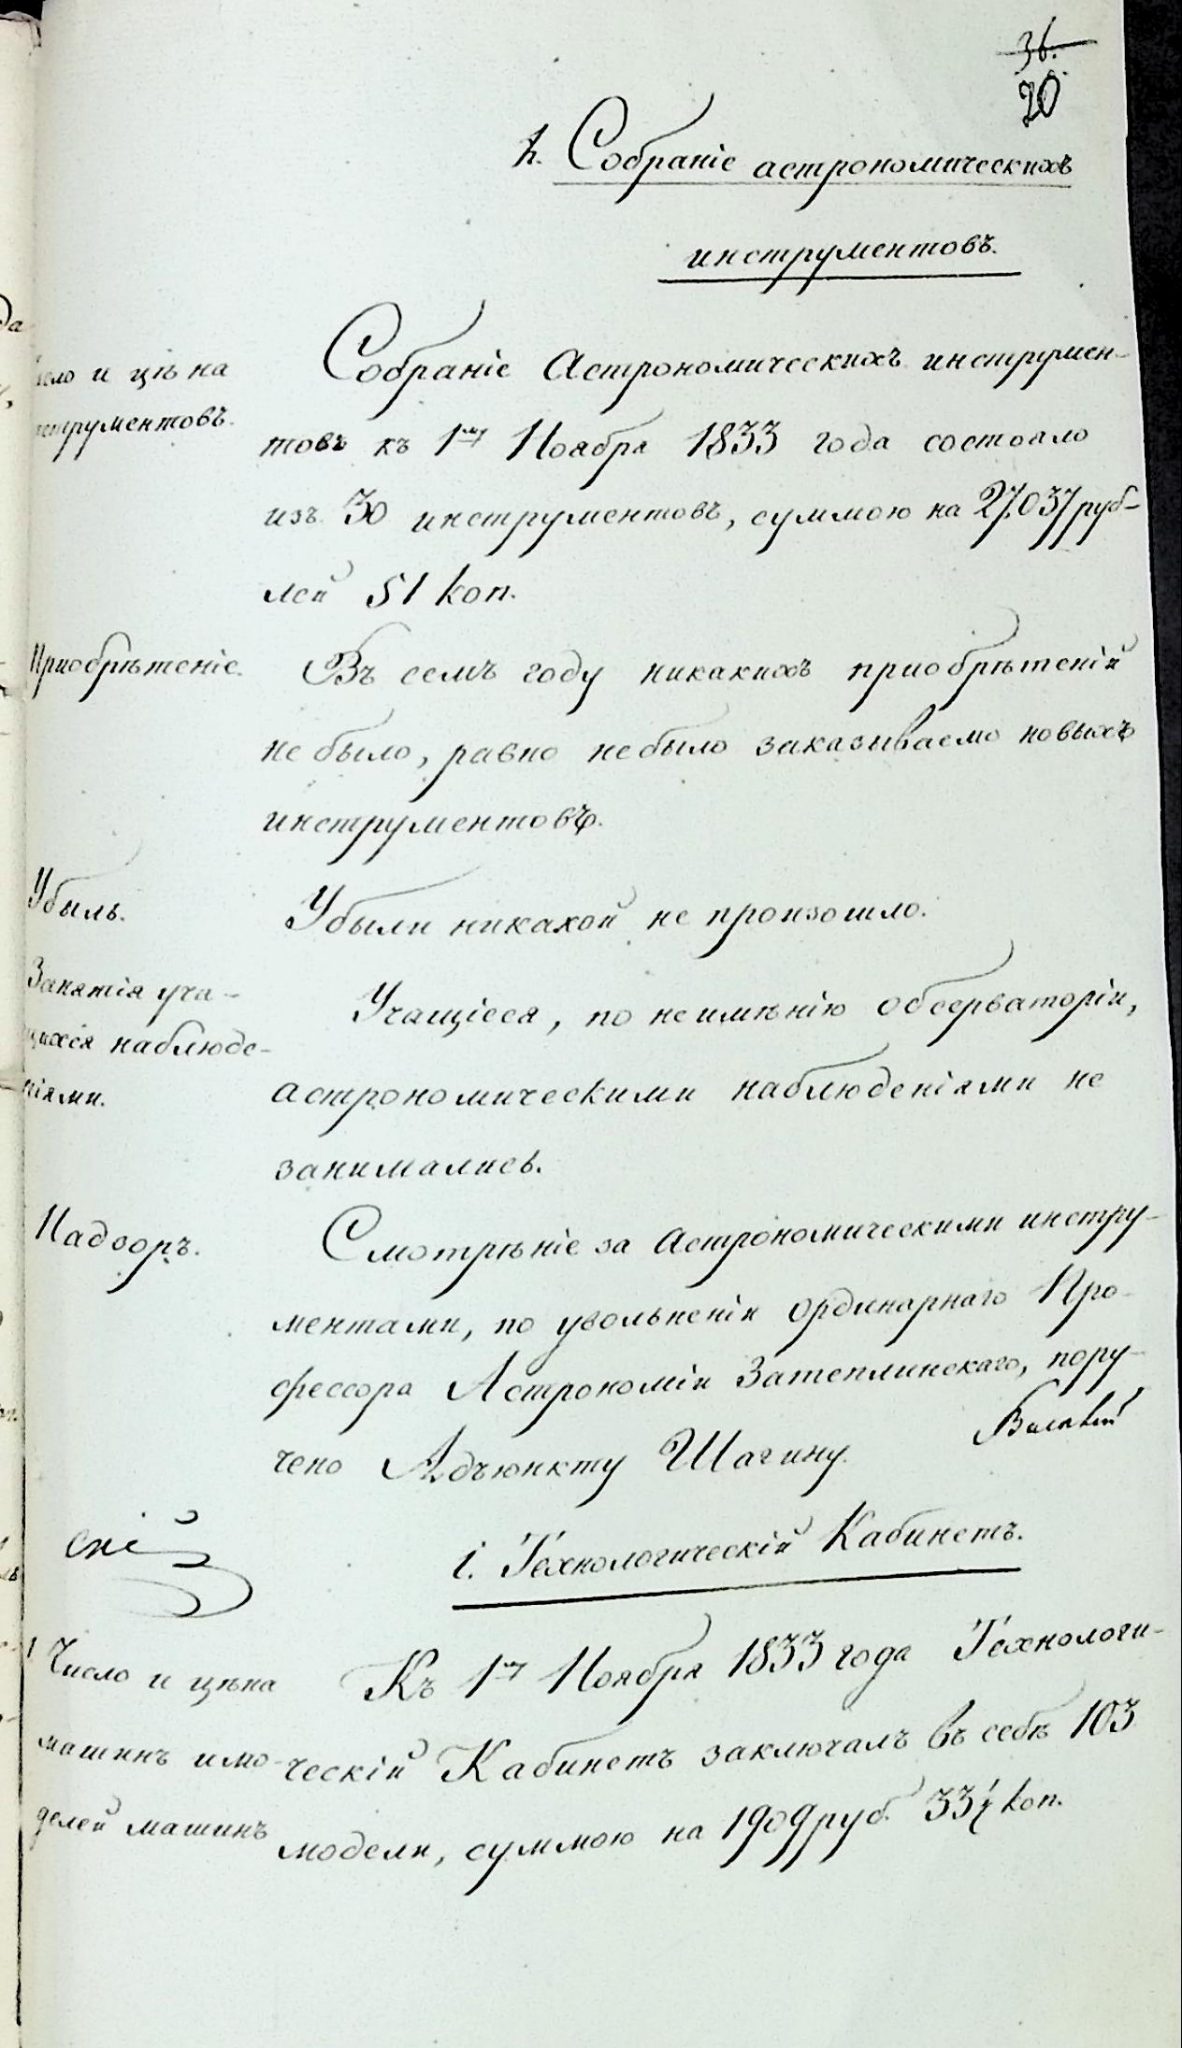 36.
20
h. Собраніе астрономическихъ
инструментовъ.
Собраніе Астрономическихъ инструмен-
товъ къ 1му Ноября 1833 года состояло
изъ 30 инструментовъ, суммою на 27.037 руб-
лей 51 коп.
и цѣна
Приобрѣтеніе.
Въ семъ году никакихъ приобрѣтеній
не было, равно не было заказываемо новыхъ
инструментовъ.
Убыль.
Убыли никакой не произошло.
Занятія уча-
наблюде-
ніями.
Учащіеся, по неимѣнію обсерваторіи,
астрономическими наблюденіями не
занимались.
Надзоръ.
Смотрѣніе за Астрономическими инстру-
ментами, по увольненіи ординарнаго Про-
фессора Астрономіи Затеплинскаго, пору-
чено Адъюнкту Шагину.
скій
i. Технологическій Кабинетъ.
Число и цѣна
машинъ и мо-
делей машинъ
Къ 1му Ноября 1833 года Технологи-
ческій Кабинетъ заключалъ въ себѣ 103
модели, суммою на 1909 руб. 33½ коп.